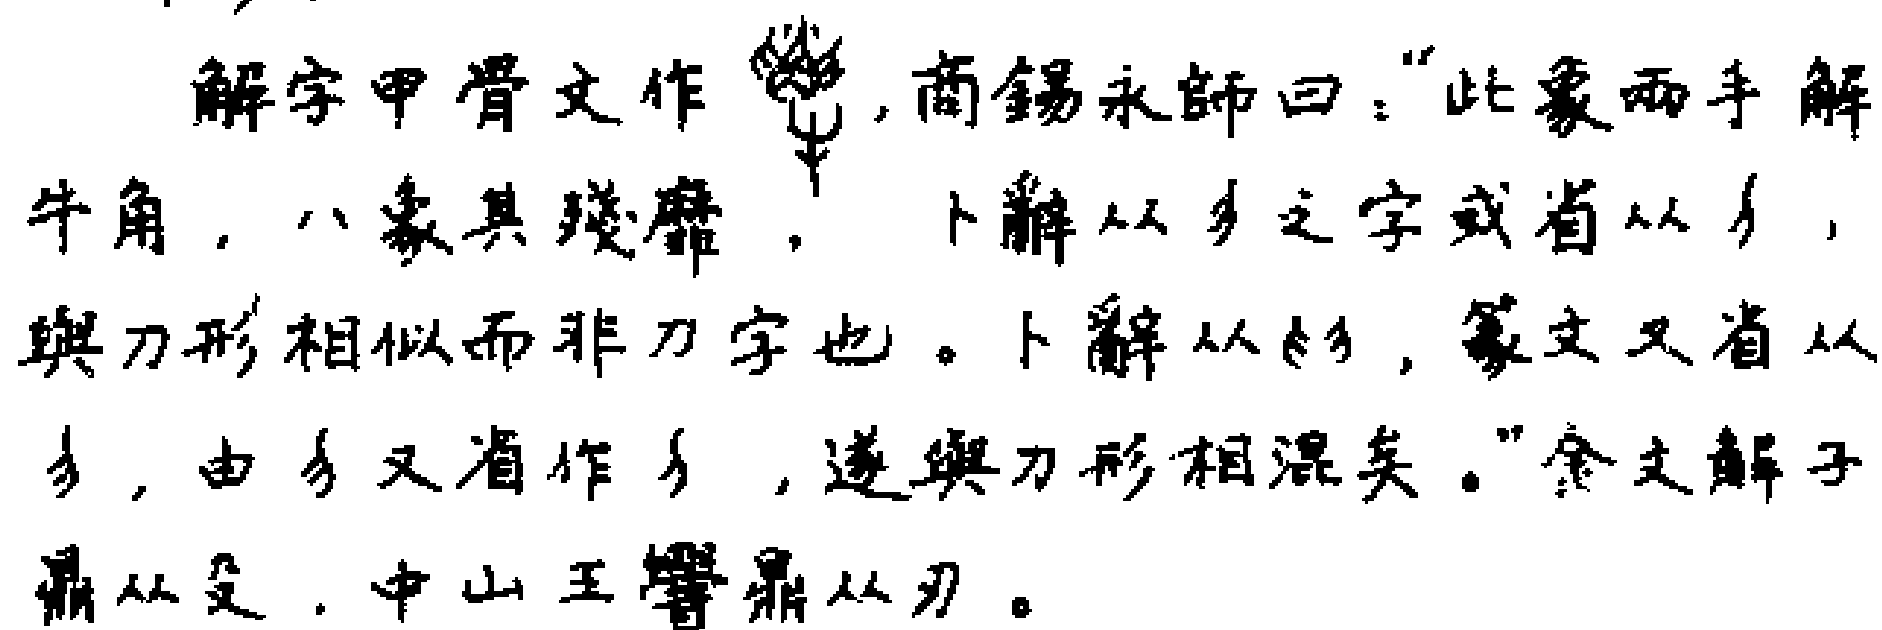 解字甲骨文作,商錫永師曰:“此象兩手解
牛角.八象其殘靡.卜辭从之字或省从,
與刀形相似而非刀字也。卜辭从,篆文又省从
,由又省作,遂與刀形相混矣。”金文解子
鼎从殳.中山王鼎从刃。